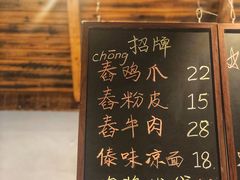 chōng 招牌
舂鸡爪 22
舂粉皮 15
舂牛肉 28
傣味凉面 18